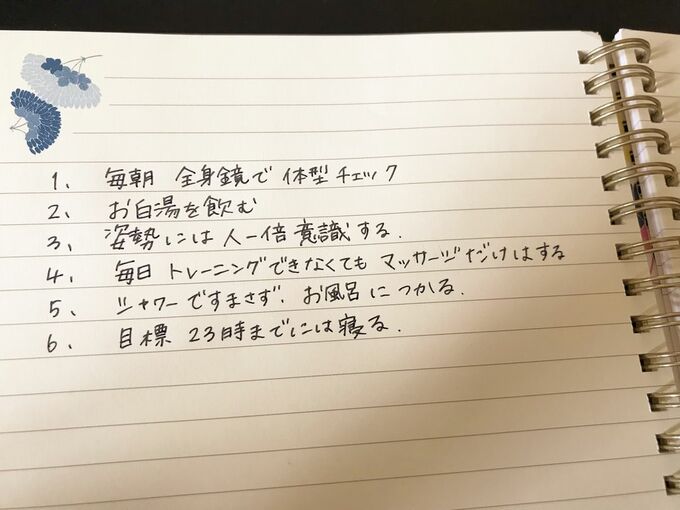 1、 毎朝 全身鏡で 体型チェック
2、 お白湯を飲む
3、 姿勢には 人一倍 意識する.
4、 毎日 トレーニングできなくても マッサージだけはする
5、 シャワーですまさず、お風呂につかる.
6、 目標 23時までには寝る.